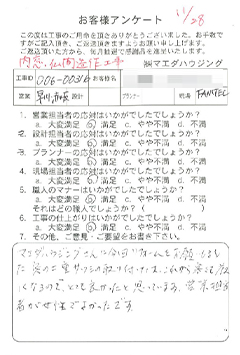 お客様アンケート
11/28
この度は工事のご用命を頂きありがとうございました。お手数で
すがご記入頂き、ご返送頂きますようお願い申し上げます。
ご返送頂いた方から、毎月抽選で感謝品を進呈いたします。
内窓・仏間造作工事 ㈱マエダハウジング
工事ID 006-00316 お客様名
営業 設計 プランナー 現場 FANTEC
1. 営業担当者の対応はいかがでしたでしょうか？
a. 大変満足 b. 満足 c. やや不満 d. 不満
2. 設計担当者の対応はいかがでしたでしょうか？
a. 大変満足 b. 満足 c. やや不満 d. 不満
3. プランナーの応対はいかがでしたでしょうか？
a. 大変満足 b. 満足 c. やや不満 d. 不満
4. 現場担当者の応対はいかがでしたでしょうか？
a. 大変満足 b. 満足 c. やや不満 d. 不満
5. 職人のマナーはいかがでしたでしょうか？
a. 大変満足 b. 満足 c. やや不満 d. 不満
それはどの職人でしょうか？（ ）
6. 工事の仕上がりはいかがでしたでしょうか？
a. 大変満足 b. 満足 c. やや不満 d. 不満
7. その他、ご意見・ご要望をお書き下さい。
マエダハウジングさんには
になるので、とても良かったと思っています。営業担当
者が でよかったです